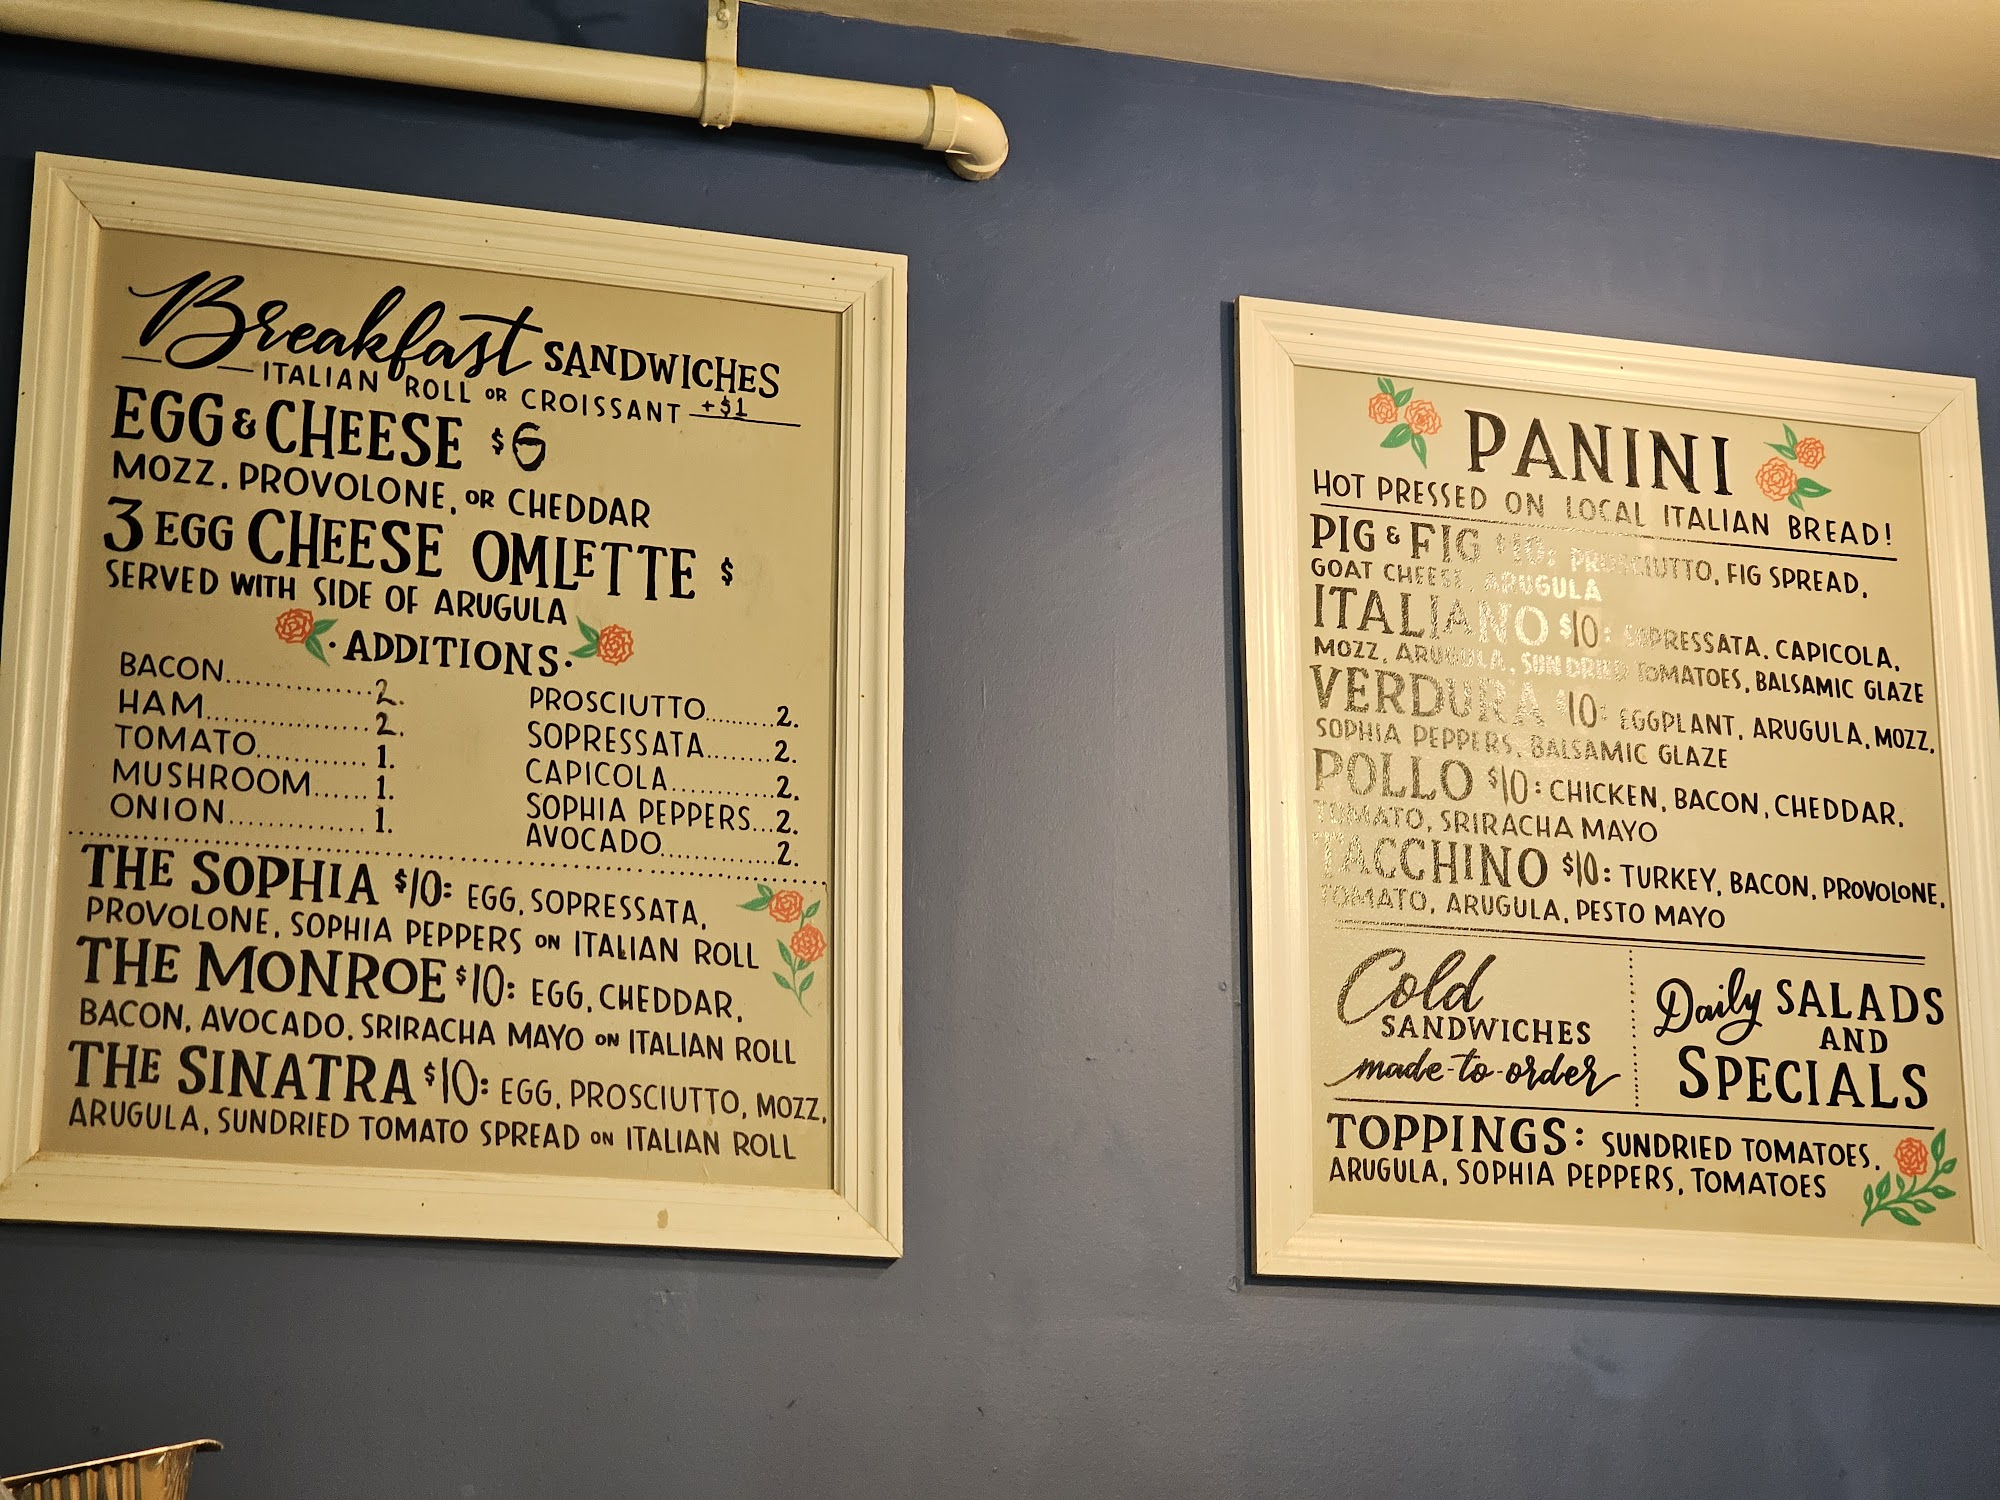 Breakfast SANDWICHES
ITALIAN ROLL OR CROISSANT +$1
EGG & CHEESE $6
MOZZ, PROVOLONE, OR CHEDDAR
3 EGG CHEESE OMLETTE $
SERVED WITH SIDE OF ARUGULA
·ADDITIONS·
BACON...............2.
HAM...............2.
TOMATO...........1.
MUSHROOM......1.
ONION..............1.
PROSCIUTTO........2.
SOPRESSATA.......2.
CAPICOLA...........2.
SOPHIA PEPPERS...2.
AVOCADO............2.
THE SOPHIA $10: EGG, SOPRESSATA,
PROVOLONE, SOPHIA PEPPERS ON ITALIAN ROLL
THE MONROE $10: EGG, CHEDDAR,
BACON, AVOCADO, SRIRACHA MAYO ON ITALIAN ROLL
THE SINATRA $10: EGG, PROSCIUTTO, MOZZ,
ARUGULA, SUNDRIED TOMATO SPREAD ON ITALIAN ROLL
PANINI
HOT PRESSED ON LOCAL ITALIAN BREAD!
PIG & FIG $10: PROSCIUTTO, FIG SPREAD,
GOAT CHEESE, ARUGULA
ITALIANO $10: SOPRESSATA, CAPICOLA,
MOZZ, ARUGULA, SUNDRIED TOMATOES, BALSAMIC GLAZE
VERDURA $10: EGGPLANT, ARUGULA, MOZZ,
SOPHIA PEPPERS, BALSAMIC GLAZE
POLLO $10: CHICKEN, BACON, CHEDDAR,
TOMATO, SRIRACHA MAYO
TACCHINO $10: TURKEY, BACON, PROVOLONE,
TOMATO, ARUGULA, PESTO MAYO
Cold
SANDWICHES
made-to-order
Daily SALADS
AND
SPECIALS
TOPPINGS: SUNDRIED TOMATOES,
ARUGULA, SOPHIA PEPPERS, TOMATOES